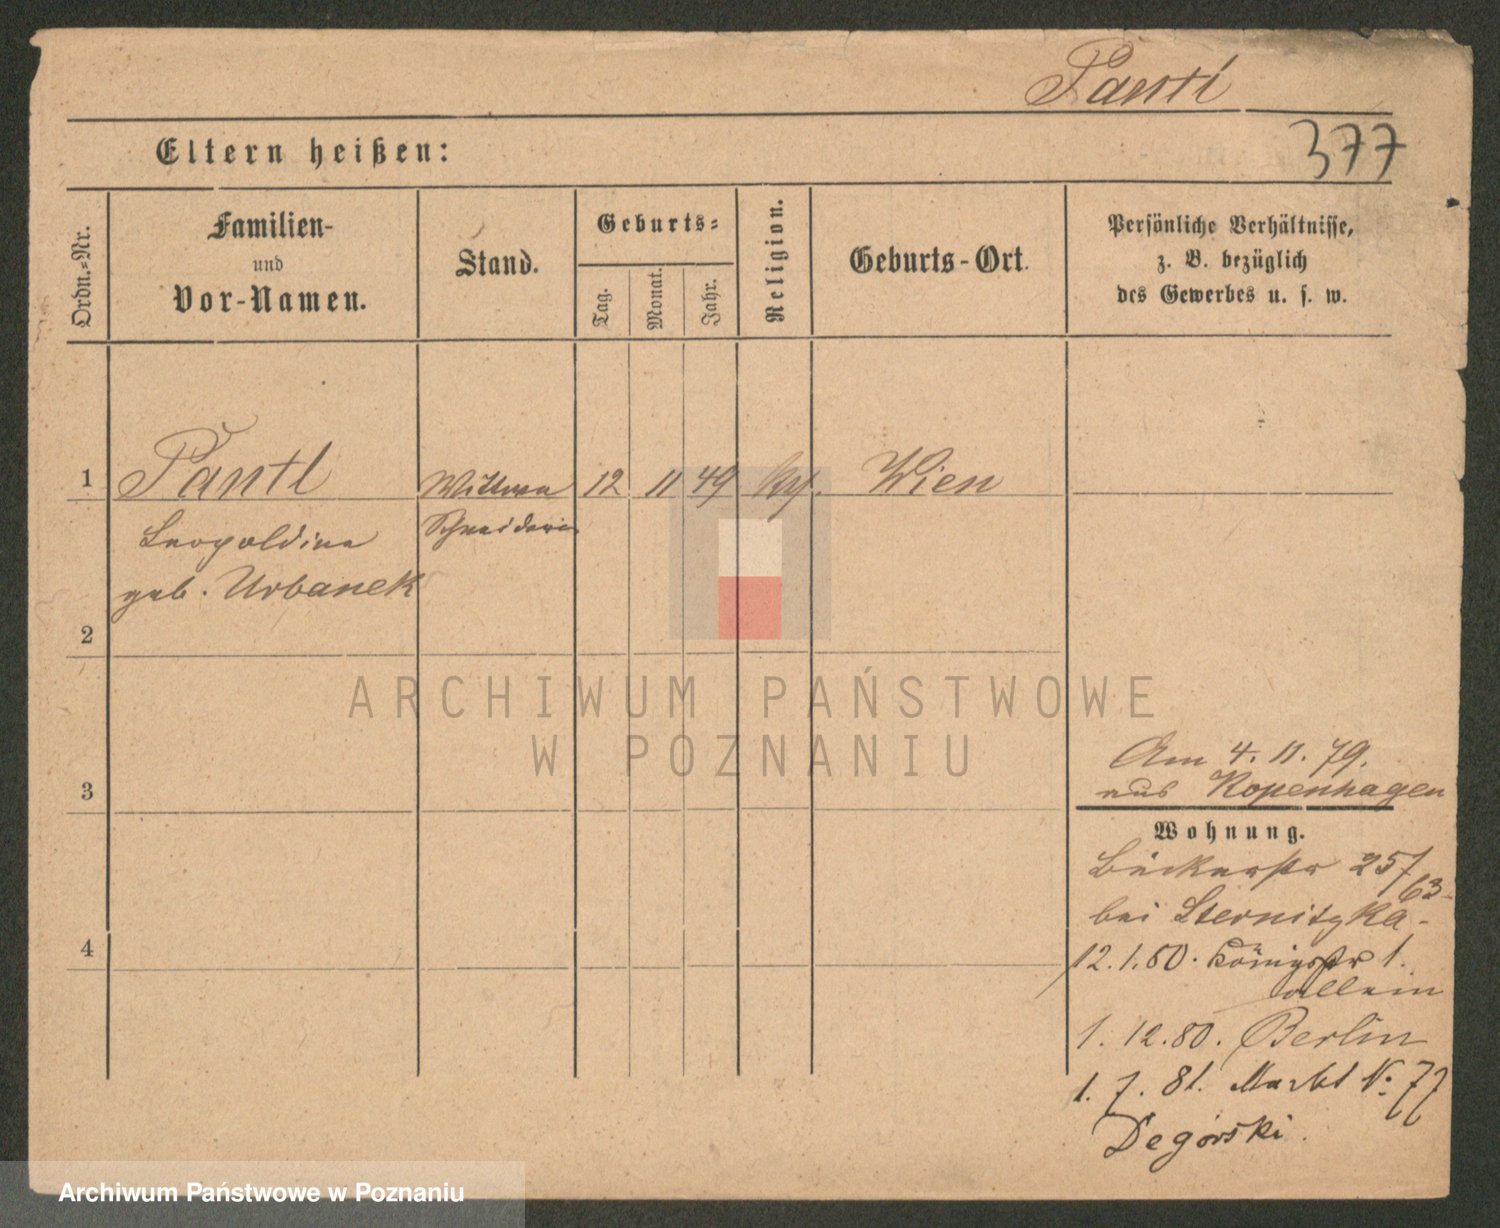 Pantl
377
Eltern heißen:
Ordn.-Nr.
Familien-
und
Vor-Namen.
Stand.
Geburts-
Tag.
Monat.
Jahr.
Religion.
Geburts-Ort.
Persönliche Verhältnisse,
z. B. bezüglich
des Gewerbes u. s. w.
1 Pantl Wittwe 12 11 49 Wien
Schneiderin
Leopoldine
geb. Urbanek
2
ARCHIWUM PAŃSTWOWE
W POZNANIU
3
Am 4. 11. 79.
aus Kopenhagen
Wohnung.
Bäckerstr 25/
bei Sternitzka
4
12. 1. 80. Königsstr 1.
allein
1. 12. 80. Berlin
1. 7. 81. Markt No 77
Degórski.
Archiwum Państwowe w Poznaniu